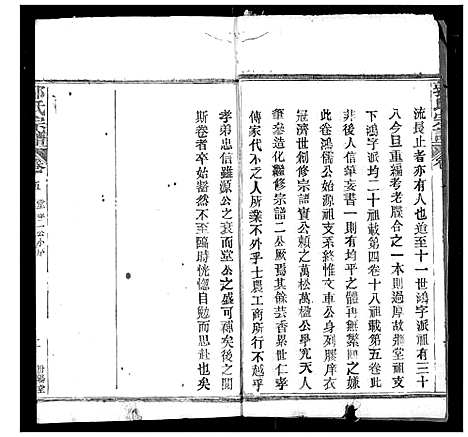 流長止者亦有人也迨至十一世鴻字派祖有三十
八今旦重編考老嚴合之一本則過厚故堂祖支
下鴻字派均二十祖載第四卷十八祖載第五卷此
非後人信筆妄書一則有均平之體再無繁問之嫌
此卷鴻儒公始源祖支系終惟文車公身列膠庠衣
冠濟世創修宗譜實公賴之萬松萬楹公學究天人
筆參造化纘修宗譜二公厥焉其餘芸香累世仁孝
傳家代不乏人所業不外乎士農工商所行不越乎
孝弟忠信雖源公之衰而堂公之盛可補矣後之閱
斯卷者卒始不至臨時恍惚自思赴也矣
郭氏宗譜
卷五
堂